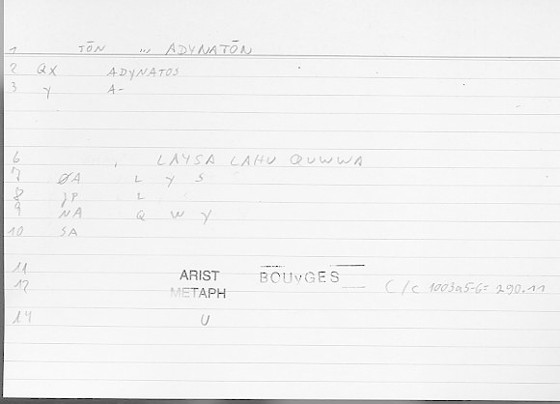 1 TŌN ... ADYNATŌN
2 QX ADYNATOS
3 Y A-
6 LAYSA LAHU QUWWA
7 ØA L Y S
8 JP L
9 NA Q W Y
10 SA
11 ARIST BOUyGES
12 METAPH C/c 1003a5-6= 290.11
14 U